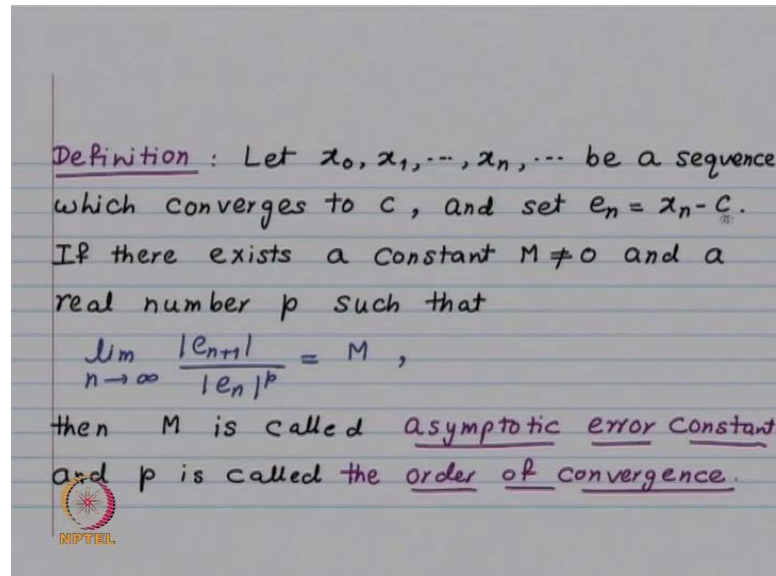 Definition : Let x₀, x₁, ---, xₙ, --- be a sequence
which converges to c, and set eₙ = xₙ - c.
If there exists a constant M ≠ 0 and a
real number p such that
lim n→∞ |eₙ₊₁| / |eₙ|ᵖ = M ,
then M is called asymptotic error constant
and p is called the order of convergence.
NPTEL